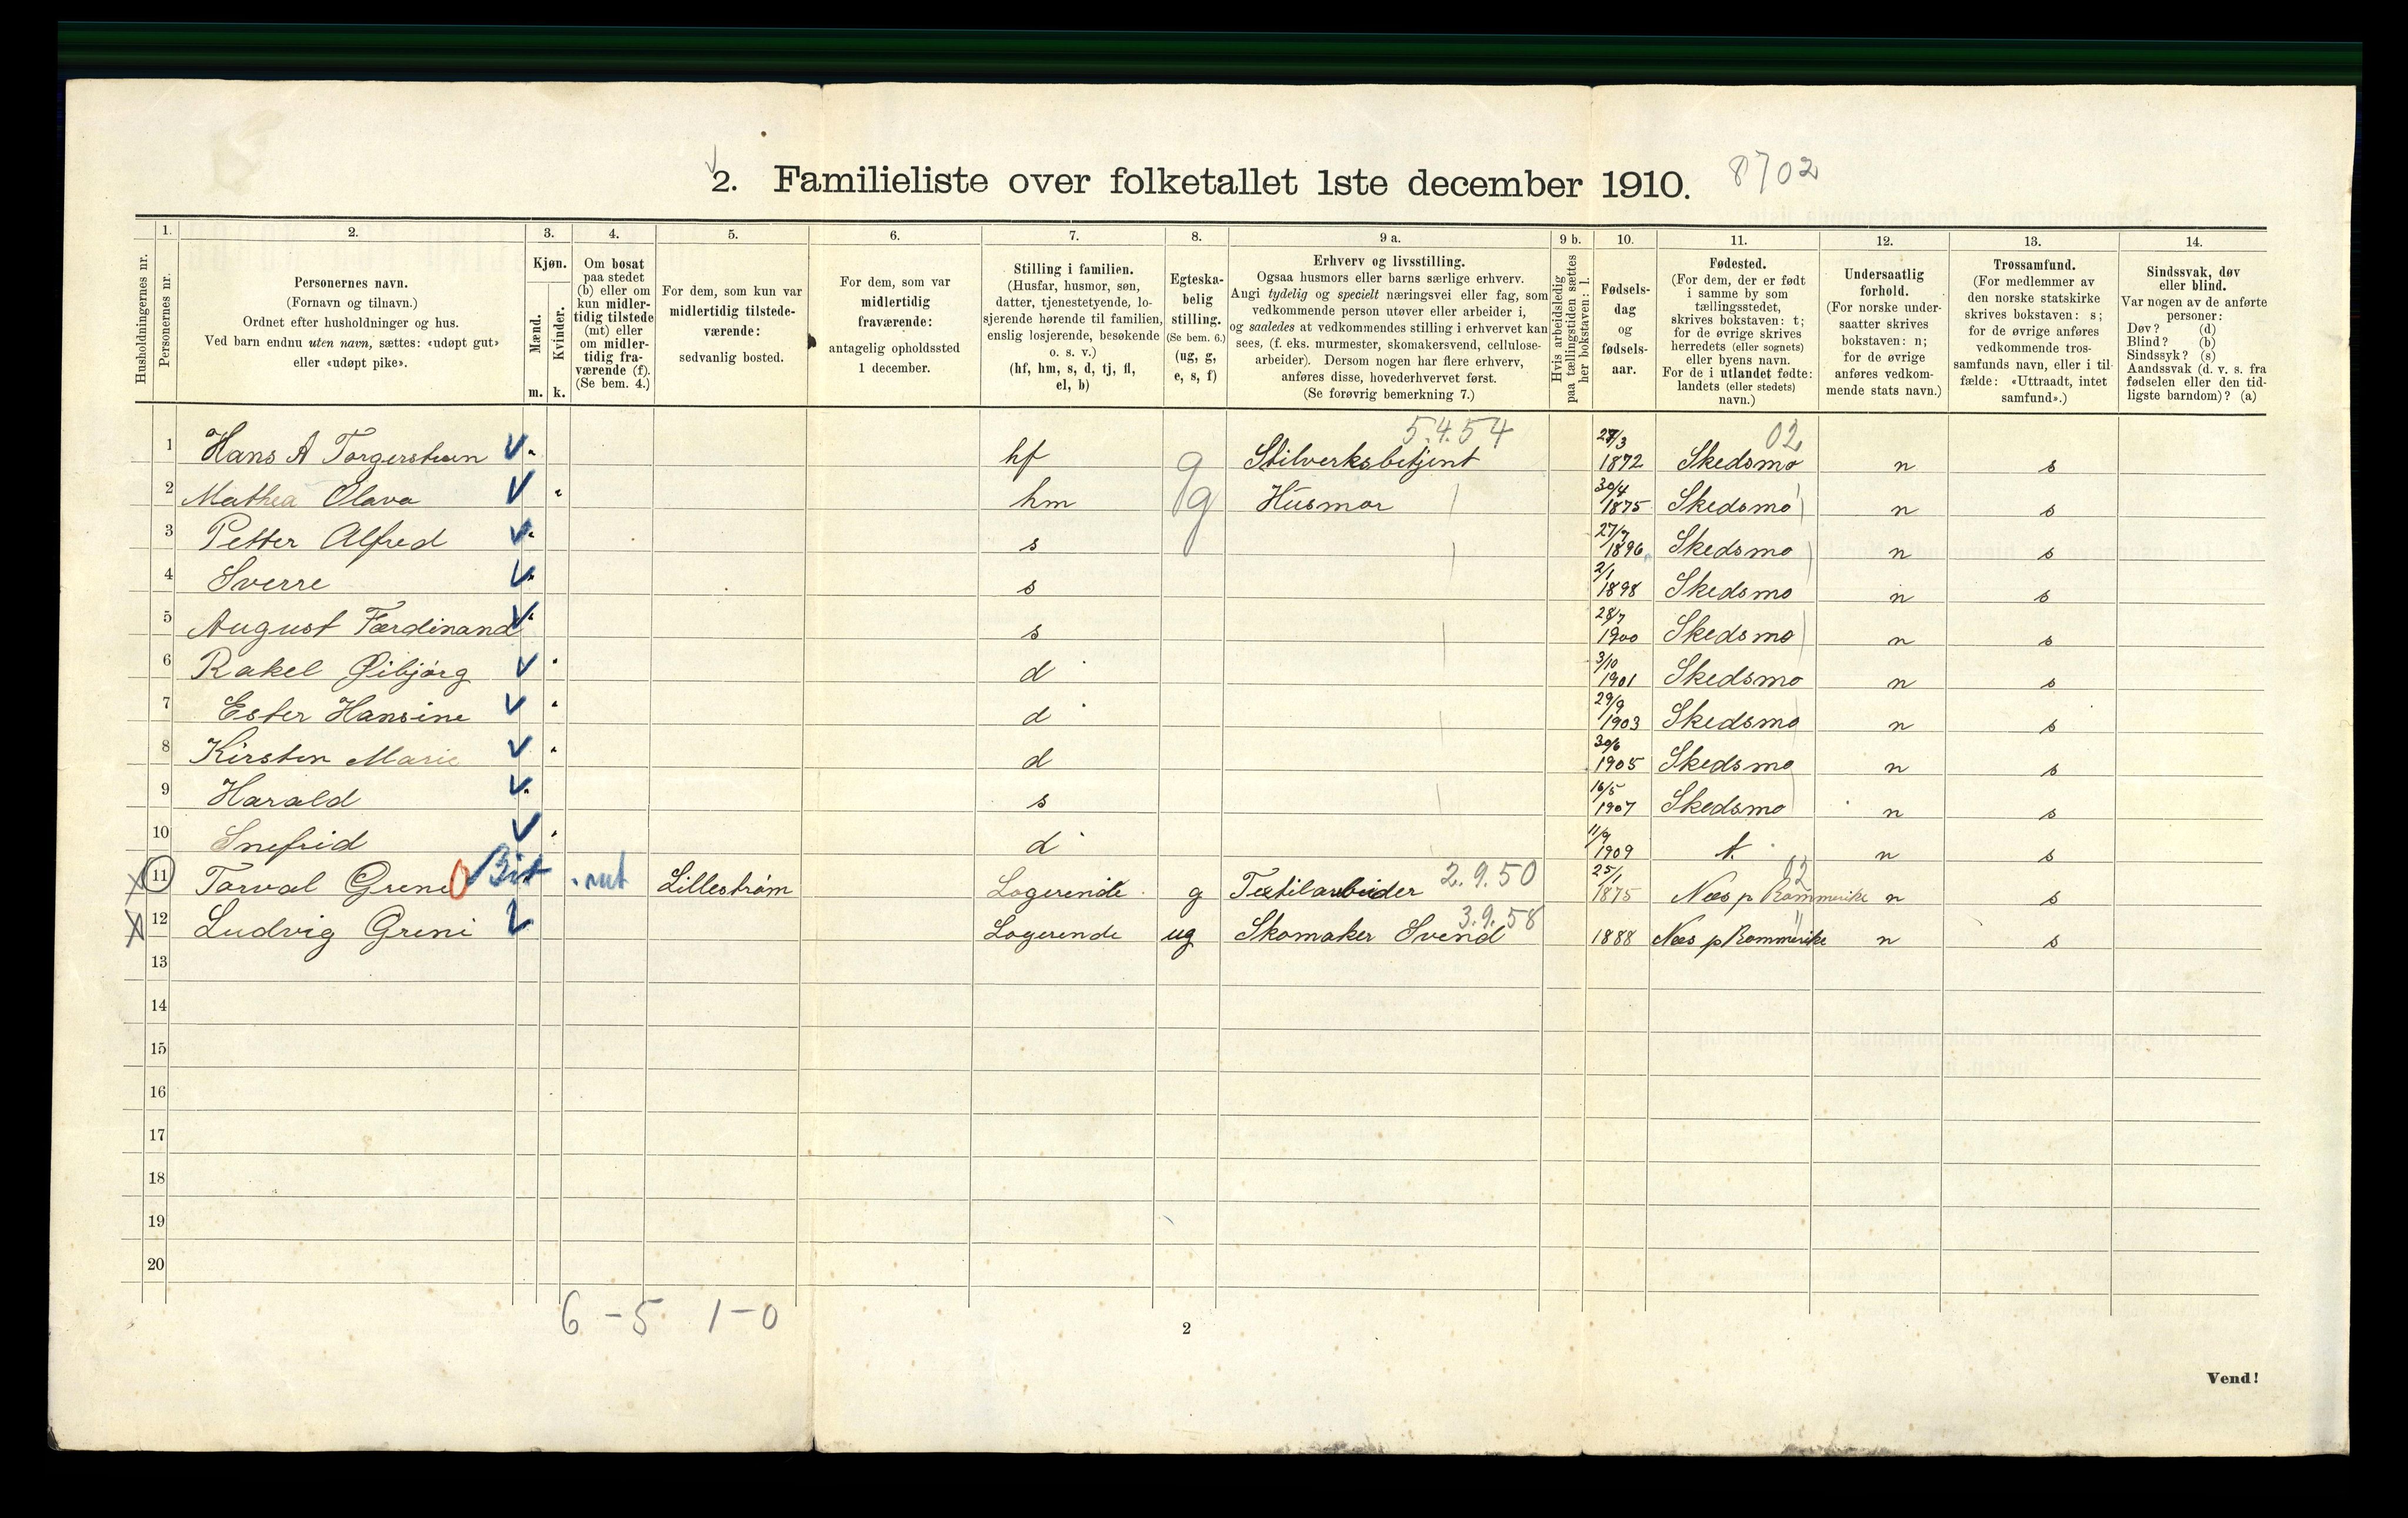 2. Familieliste over folketallet 1ste december 1910. 8702
Husholdningernes nr.
1. Personernes nr.
2. Personernes navn.
(Fornavn og tilnavn.)
Ordnet efter husholdninger og hus.
Ved barn endnu uten navn, sættes: «udøpt gut»
eller «udøpt pike».
3. Kjøn.
Mænd. m.
Kvinder. k.
4. Om bosat
paa stedet
(b) eller om
kun midler-
tidig tilstede
(mt) eller
om midler-
tidig fra-
værende (f).
(Se bem. 4.)
5. For dem, som kun var
midlertidig tilstede-
værende:
sedvanlig bosted.
6. For dem, som var
midlertidig
fraværende:
antagelig opholdssted
1 december.
7. Stilling i familien.
(Husfar, husmor, søn,
datter, tjenestetyende, lo-
sjerende hørende til familien,
enslig losjerende, besøkende
o. s. v.)
(hf, hm, s, d, tj, fl,
el, b)
8. Egteska-
belig
stilling.
(Se bem. 6.)
(ug, g,
e, s, f)
9 a. Erhverv og livsstilling.
Ogsaa husmors eller barns særlige erhverv.
Angi tydelig og specielt næringsvei eller fag, som
vedkommende person utøver eller arbeider i,
og saaledes at vedkommendes stilling i erhvervet kan
sees, (f. eks. murmester, skomakersvend, cellulose-
arbeider). Dersom nogen har flere erhverv,
anføres disse, hovederhvervet først.
(Se forøvrig bemerkning 7.)
9 b. Hvis arbeidsledig
paa tællingstiden sættes
her bokstaven: l.
10. Fødsels-
dag
og
fødsels-
aar.
11. Fødested.
(For dem, der er født
i samme by som
tællingsstedet,
skrives bokstaven: t;
for de øvrige skrives
herredets (eller sognets)
eller byens navn.
For de i utlandet fødte:
landets (eller stedets)
navn.)
12. Undersaatlig
forhold.
(For norske under-
saatter skrives
bokstaven: n;
for de øvrige
anføres vedkom-
mende stats navn.)
13. Trossamfund.
(For medlemmer av
den norske statskirke
skrives bokstaven: s;
for de øvrige anføres
vedkommende tros-
samfunds navn, eller i til-
fælde: «Uttraadt, intet
samfund».)
14. Sindssvak, døv
eller blind.
Var nogen av de anførte
personer:
Døv? (d)
Blind? (b)
Sindssyk? (s)
Aandssvak (d. v. s. fra
fødselen eller den tid-
ligste barndom)? (a)
5.4.54 02
1 Hans A Torgersteen hf g Stilverksbetjent 27/3 1872 Skedsmo n s
2 Mathea Olava hm g Husmor 30/4 1875 Skedsmo n s
3 Petter Alfred s 27/7 1896 Skedsmo n s
4 Sverre s 2/1 1898 Skedsmo n s
5 August Færdinand s 28/7 1900 Skedsmo n s
6 Rakel d 3/10 1901 Skedsmo n s
7 Ester Hansine d 29/9 1903 Skedsmo n s
8 Kirsten Marie d 30/6 1905 Skedsmo n s
9 Harald s 16/5 1907 Skedsmo n s
10 Snefrid d 11/9 1909 t. n s
11 Torval Greni mt Lillestrøm Logerende g Textilarbeider 2.9.50 25/1 1875 Næs p Rommerike 02 n s
12 Ludvig Greni Logerende ug Skomaker Svend 3.9.58 1888 Næs p Rommerike n s
13
14
15
16
17
18
19
20
6 - 5 1 - 0
2
Vend!